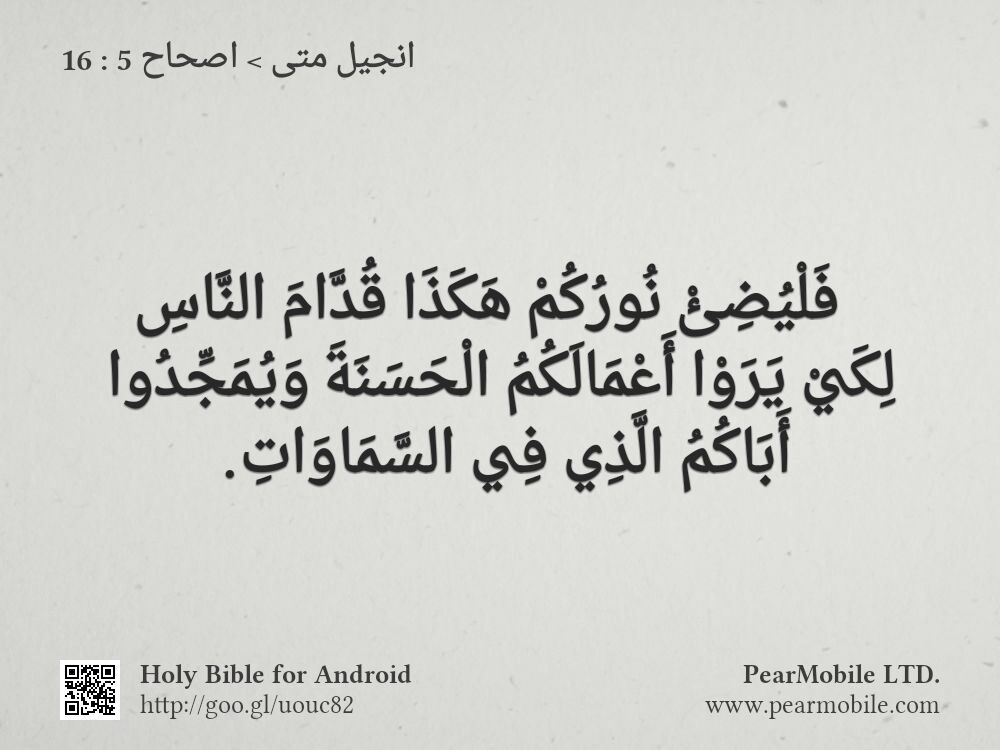 انجيل متى > اصحاح 5 : 16
فَلْيُضِئْ نُورُكُمْ هَكَذَا قُدَّامَ النَّاسِ
لِكَيْ يَرَوْا أَعْمَالَكُمُ الْحَسَنَةَ وَيُمَجِّدُوا
أَبَاكُمُ الَّذِي فِي السَّمَاوَاتِ.
Holy Bible for Android
http://goo.gl/uouc82
PearMobile LTD.
www.pearmobile.com